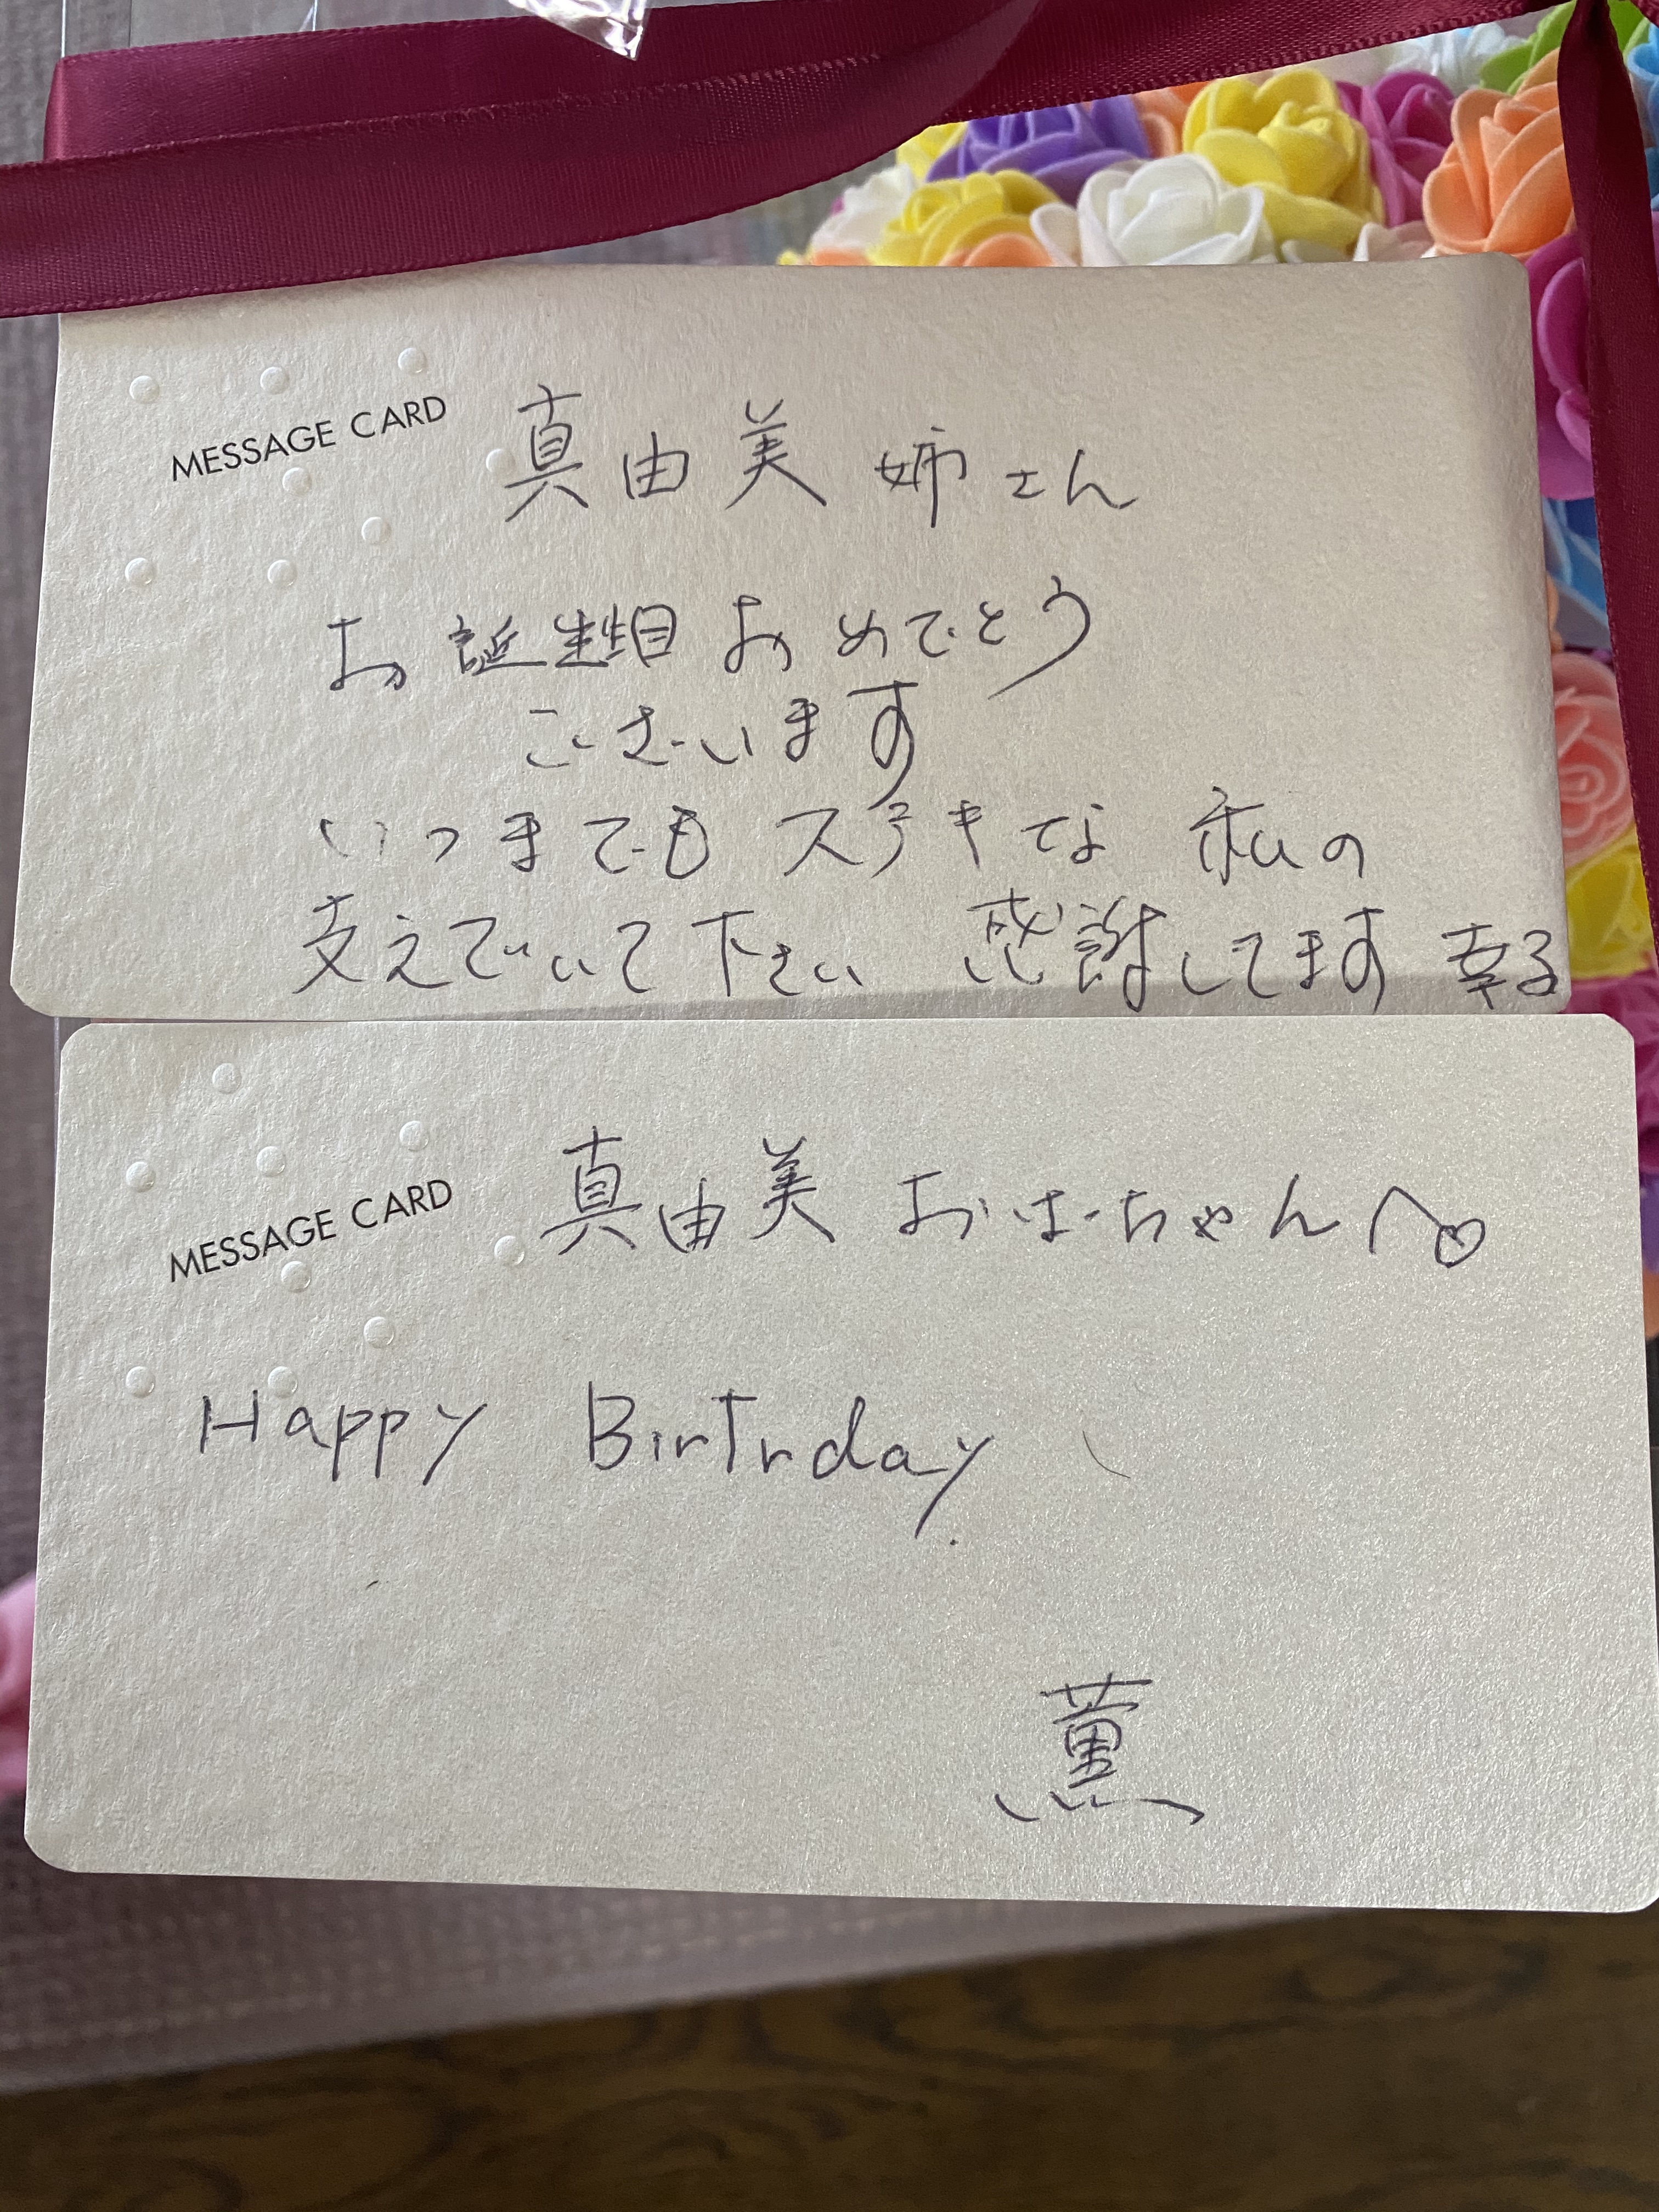 MESSAGE CARD
真由美姉さん
お誕生日おめでとう
ございます
いつまでもステキな私の
支えでいて下さい 感謝してます 幸る
MESSAGE CARD
真由美おばちゃんへ♡
Happy Birtrday
薫